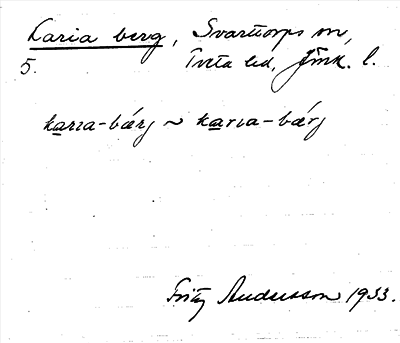 Karia berg, Svarttorps sn,
5. Tveta hd, Jönk. l.
karıa-bærj ~ karıa-bærj
Fritz Andersson 1933.